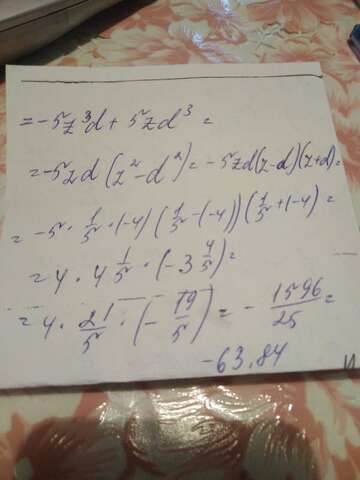 = -5z³d + 5zd³ =
= -5zd(z² - d²) = -5zd(z-d)(z+d) =
= -5 · 1/5 · (-4) (1/5 - (-4)) (1/5 + (-4) =
= 4 · 4 1/5 · (-3 4/5) =
= 4 · 21/5 · (- 19/5) = - 1596/25 =
-63,84